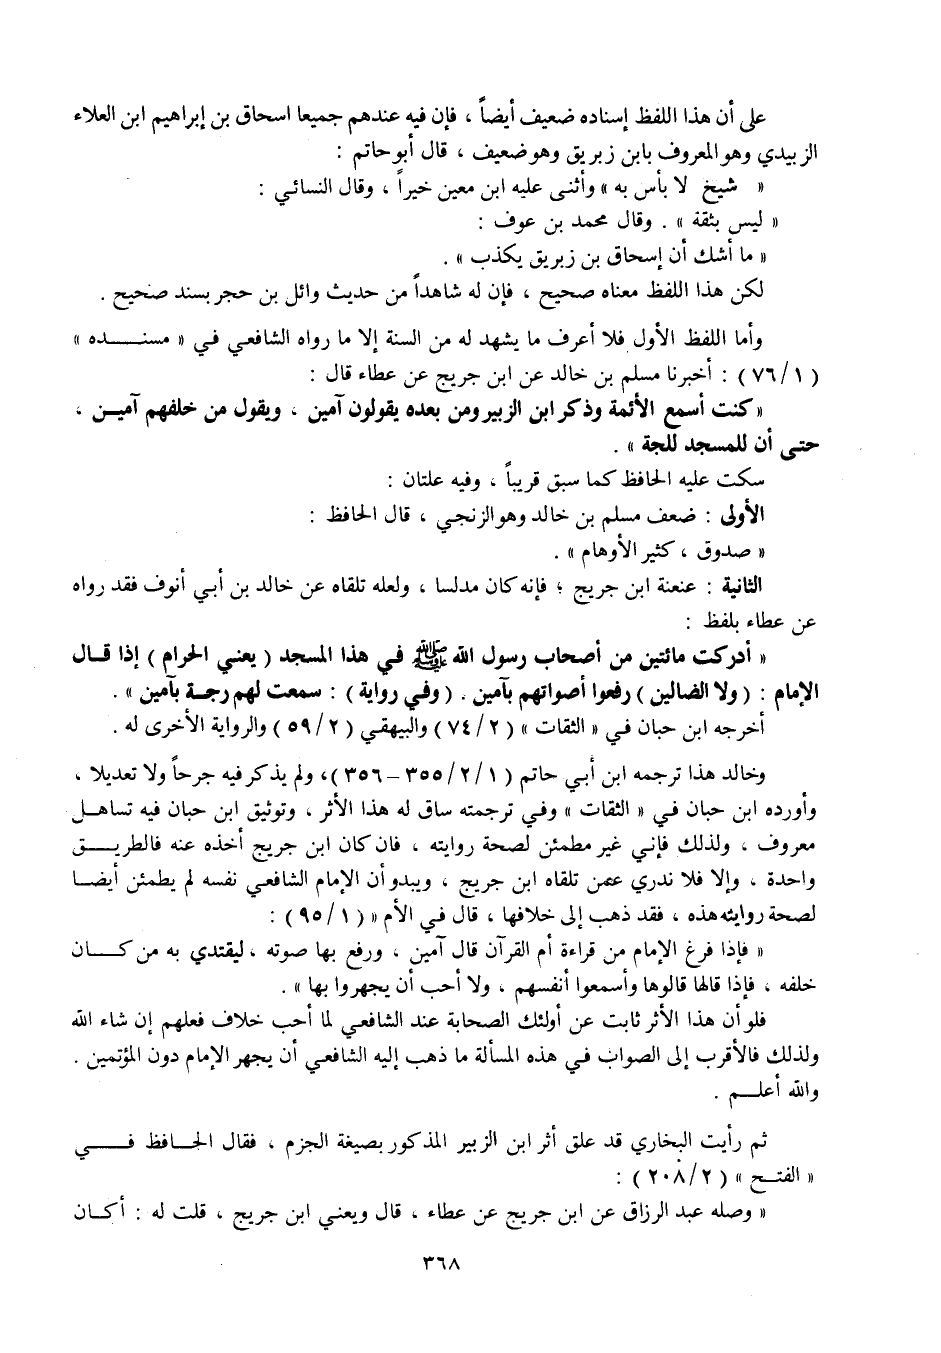 على أن هذا اللفظ إسناده ضعيف أيضاً ، فإن فيه عندهم جميعا اسحاق بن إبراهيم ابن العلاء
الزبيدي وهو المعروف بابن زبريق وهو ضعيف ، قال أبو حاتم :
« شيخ لا بأس به » وأثنى عليه ابن معين خيراً ، وقال النسائي :
« ليس بثقة » . وقال محمد بن عوف :
« ما أشك أن إسحاق بن زبريق يكذب » .
لكن هذا اللفظ معناه صحيح ، فإن له شاهداً من حديث وائل بن حجر بسند صحيح .
وأما اللفظ الأول فلا أعرف ما يشهد له من السنة إلا ما رواه الشافعي في « مسنـــده »
( ١/ ٧٦ ) : أخبرنا مسلم بن خالد عن ابن جريج عن عطاء قال :
« كنت أسمع الأئمة وذكر ابن الزبير ومن بعده يقولون آمين ، ويقول من خلفهم آميــن ،
حتى أن للمسجد للجة » .
سكت عليه الحافظ كما سبق قريباً ، وفيه علتان :
الأولى : ضعف مسلم بن خالد وهو الزنجي ، قال الحافظ :
« صدوق ، كثير الأوهام » .
الثانية : عنعنة ابن جريج ؛ فإنه كان مدلسا ، ولعله تلقاه عن خالد بن أبي أنوف فقد رواه
عن عطاء بلفظ :
« أدركت مائتين من أصحاب رسول الله ﷺ في هذا المسجد ( يعني الحرام ) إذا قــال
الإمام : ( ولا الضالين ) رفعوا أصواتهم بآمين . ( وفي رواية ) : سمعت لهم رجــة بآمين » .
أخرجه ابن حبان في « الثقات » ( ٢/ ٧٤ ) والبيهقي ( ٢/ ٥٩ ) والرواية الأخرى له .
وخالد هذا ترجمه ابن أبي حاتم ( ١/ ٢/ ٣٥٥ – ٣٥٦ )، ولم يذكر فيه جرحاً ولا تعديلا ،
وأورده ابن حبان في « الثقات » وفي ترجمته ساق له هذا الأثر ، وتوثيق ابن حبان فيه تساهــل
معروف ، ولذلك فإني غير مطمئن لصحة روايته ، فان كان ابن جريج أخذه عنه فالطريـــق
واحدة ، وإلا فلا ندري عمن تلقاه ابن جريج ، ويبدو أن الإمام الشافعي نفسه لم يطمئن أيضــا
لصحة روايته هذه ، فقد ذهب إلى خلافها ، قال في الأم » ( ١/ ٩٥ ) :
« فإذا فرغ الإمام من قراءة أم القرآن قال آمين ، ورفع بها صوته ، ليقتدي به من كـــان
خلفه ، فإذا قالها قالوها وأسمعوا أنفسهم ، ولا أحب أن يجهروا بها » .
فلو أن هذا الأثر ثابت عن أولئك الصحابة عند الشافعي لما أحب خلاف فعلهم إن شاء الله
ولذلك فالأقرب إلى الصواب في هذه المسألة ما ذهب إليه الشافعي أن يجهر الإمام دون المؤتمين .
والله أعلــم .
ثم رأيت البخاري قد علق أثر ابن الزبير المذكور بصيغة الجزم ، فقال الحــافظ فـــي
« الفتــح » ( ٢/ ٢٠٨ ) :
« وصله عبد الرزاق عن ابن جريج عن عطاء ، قال ويعني ابن جريج ، قلت له : أكــان
٣٦٨